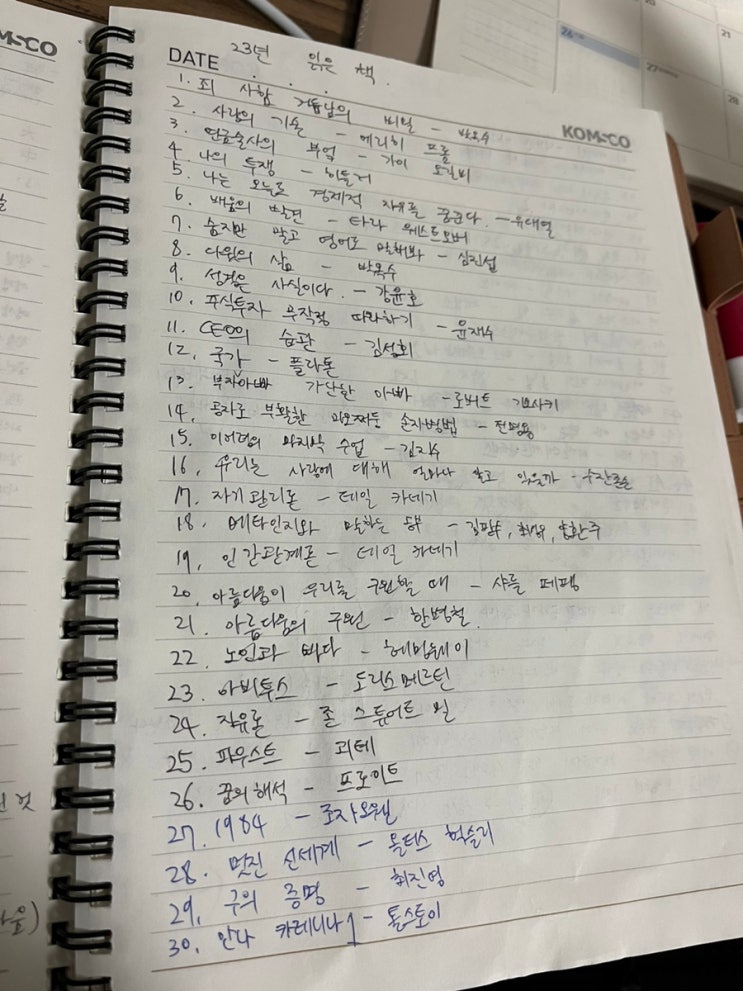 KOMSCO
DATE 23년 읽은 책.
KOMSCO
1. 죄 사함 거듭남의 비밀 - 박옥수
2. 사랑의 기술 - 에리히 프롬
3. 연금술사의 부엌 - 가이 오길비
4. 나의 투쟁 - 히틀러
5. 나는 오늘도 경제적 자유를 꿈꾼다. - 유대열
6. 배움의 발견 - 타라 웨스트오버
7. 숨지만 말고 영어로 말해봐 - 심진섭
8. 다윗의 삶 - 박옥수
9. 성경은 사실이다. - 강윤호
10. 주식투자 무작정 따라하기 - 윤재수
11. CEO의 습관 - 김성회
12. 국가 - 플라톤
13. 부자아빠 가난한 아빠 - 로버트 기요사키
14. 공자로 부활한 마오쩌둥 손자병법 - 전명용
15. 이어령의 마지막 수업 - 김지수
16. 우리는 사랑에 대해 얼마나 알고 있을까 - 수잔존슨
17. 자기관리론 - 데일 카네기
18. 메타인지와 말하는 공부 -
19. 인간관계론 - 데일 카네기
20. 아름다움이 우리를 구원할 때 - 샤를 페팽
21. 아름다움의 구원 - 한병철.
22. 노인과 바다 - 헤밍웨이
23. 아비투스 - 도리스 메르틴
24. 자유론 - 존 스튜어트 밀
25. 파우스트 - 괴테
26. 꿈의 해석 - 프로이트
27. 1984 - 조지오웰
28. 멋진 신세계 - 올더스 헉슬리
29. 구의 증명 - 최진영
30. 안나 카레니나 1 - 톨스토이